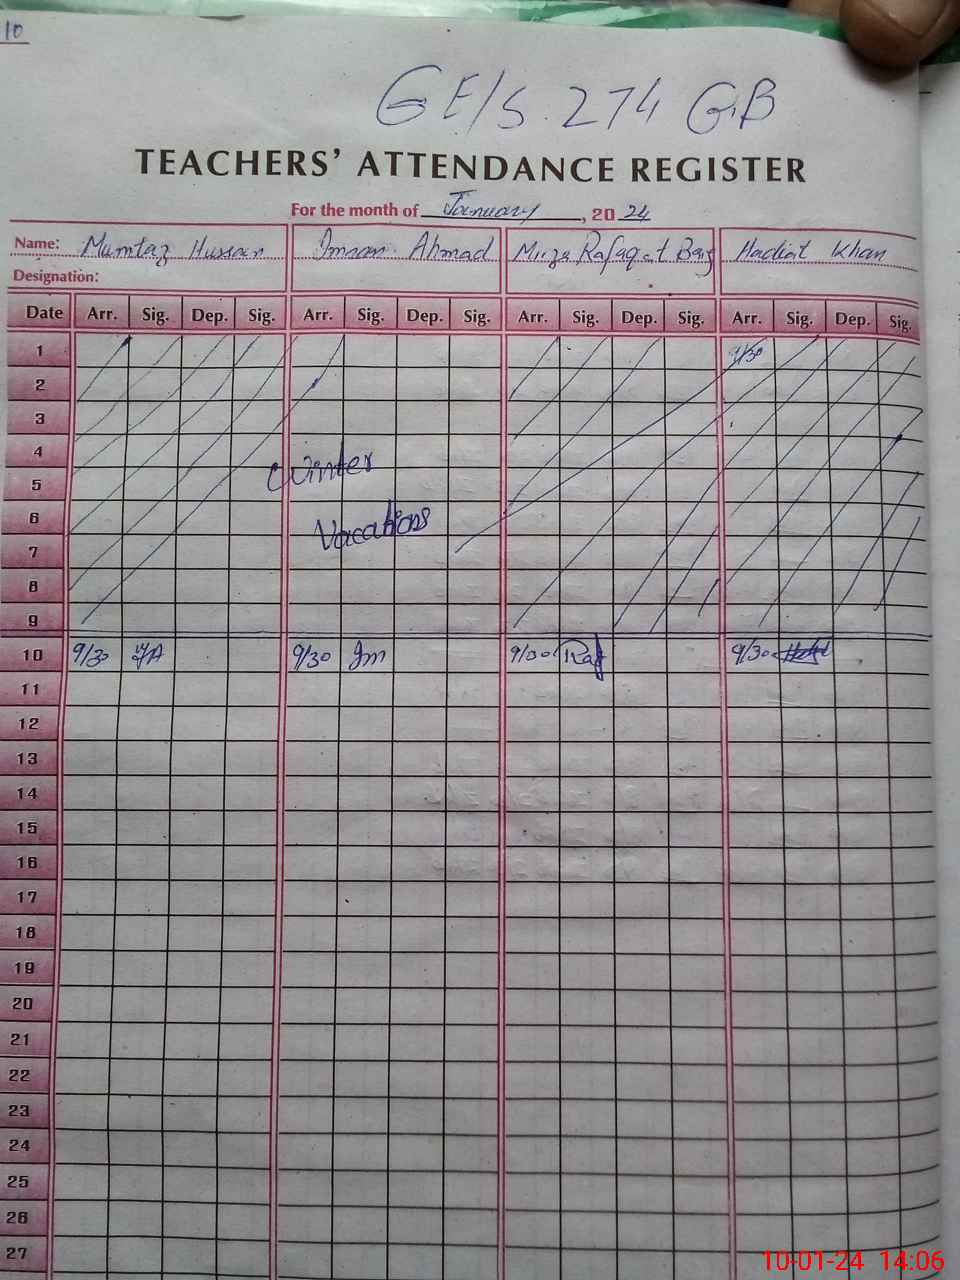 10
GE/S 274 G.B
TEACHERS' ATTENDANCE REGISTER
For the month of January, 2024
Name: Mumtaz Hussain Imran Ahmad Mirza Rafaqat Baig Hadiat Khan
Designation:
Date Arr. Sig. Dep. Sig. Arr. Sig. Dep. Sig. Arr. Sig. Dep. Sig. Arr. Sig. Dep. Sig.
1 9/30
2
3
4
Winter
5
6
Vacations
7
8
9
10 9/30 9/30 Im 9/00 Raf 9/30
11
12
13
14
15
16
17
18
19
20
21
22
23
24
25
26
27
10-01-24 14:06